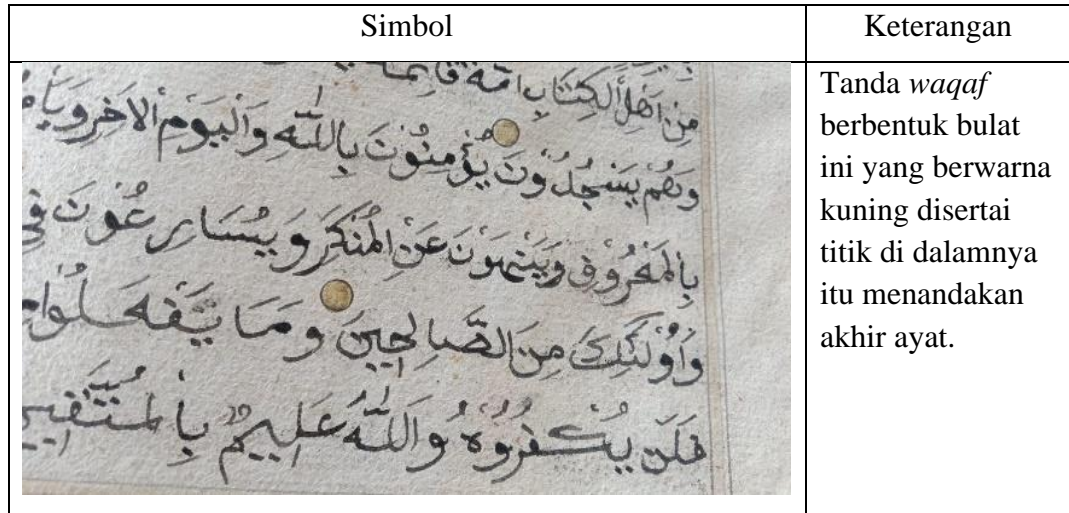 Simbol
Keterangan
مِنْ اَهْلِ الْكِتَابِ اُمَّةٌ قَائِمَةٌ
وَهُمْ يَسْجُدُوْنَ يُؤْمِنُوْنَ بِاللّٰهِ وَالْيَوْمِ الْاٰخِرِ
بِالْمَعْرُوْفِ وَيَنْهَوْنَ عَنِ الْمُنْكَرِ وَيُسَارِعُوْنَ فِي
وَاُوْلٰئِكَ مِنَ الصَّالِحِيْنَ وَمَا يَفْعَلُوْا
فَلَنْ يُكْفَرُوْهُ وَاللّٰهُ عَلِيْمٌ
Tanda waqaf
berbentuk bulat
ini yang berwarna
kuning disertai
titik di dalamnya
itu menandakan
akhir ayat.